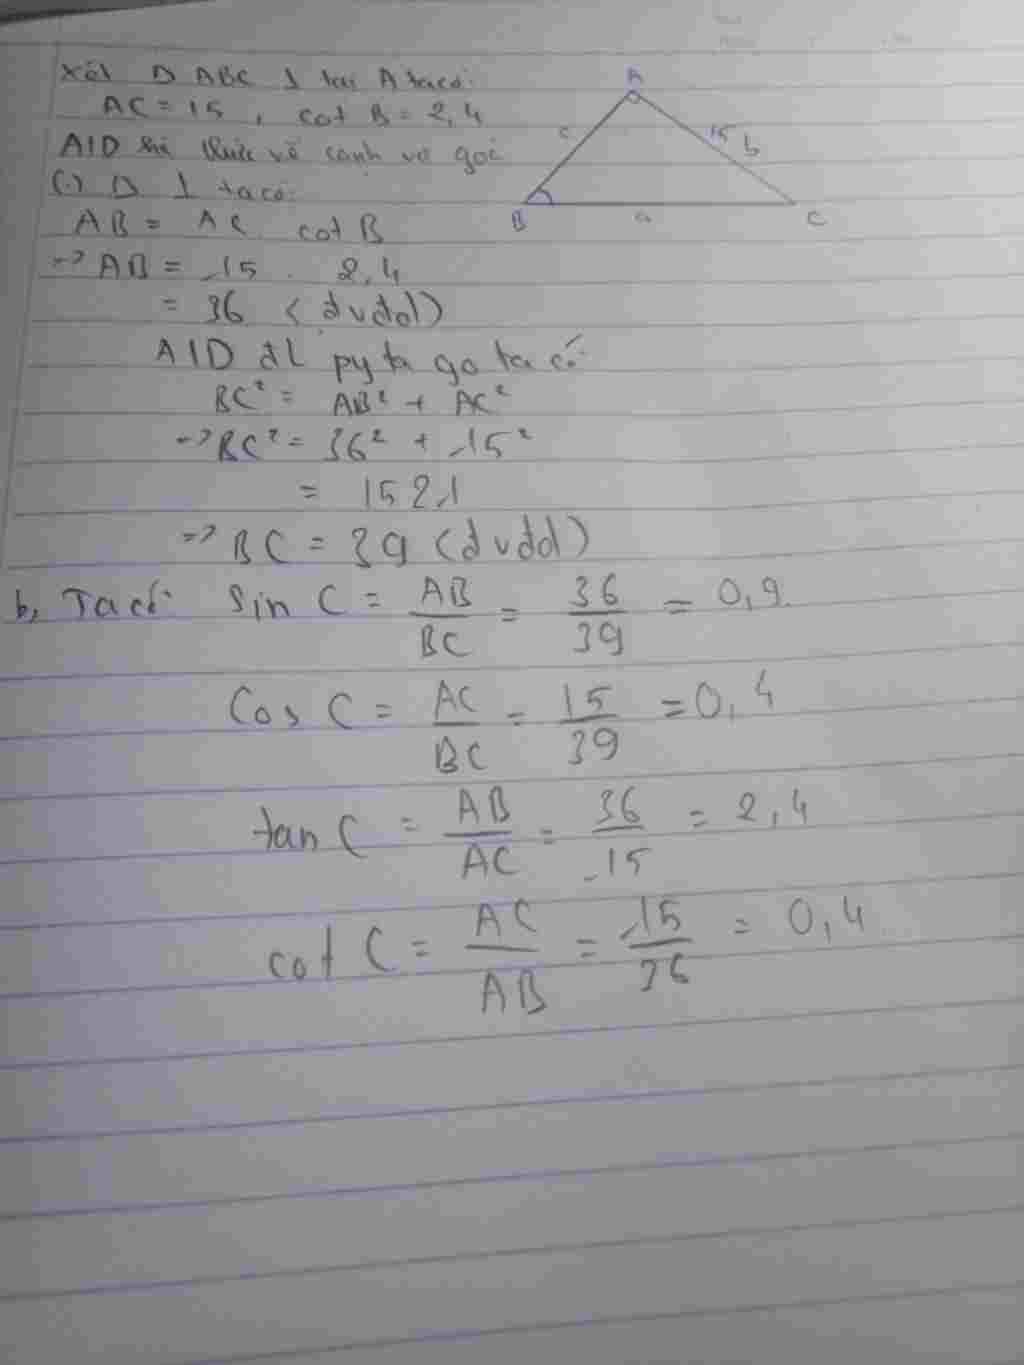 Xét Δ ABC ⊥ tại A ta có:
AC = 15 , cot B = 2,4
AID hệ thức về cạnh và góc
(.) Δ ⊥ ta có:
AB = AC cot B
=> AB = 15 . 2,4
= 36 (đvđd)
AID đL pytago ta có:
BC² = AB² + AC²
=> BC² = 36² + 15²
= 1521
=> BC = 39 (đvđd)
b, Ta có: Sin C = AB/BC = 36/39 = 0,9
Cos C = AC/BC = 15/39 = 0,4
tan C = AB/AC = 36/15 = 2,4
cot C = AC/AB = 15/36 = 0,4
A
c
15 b
B
a
C